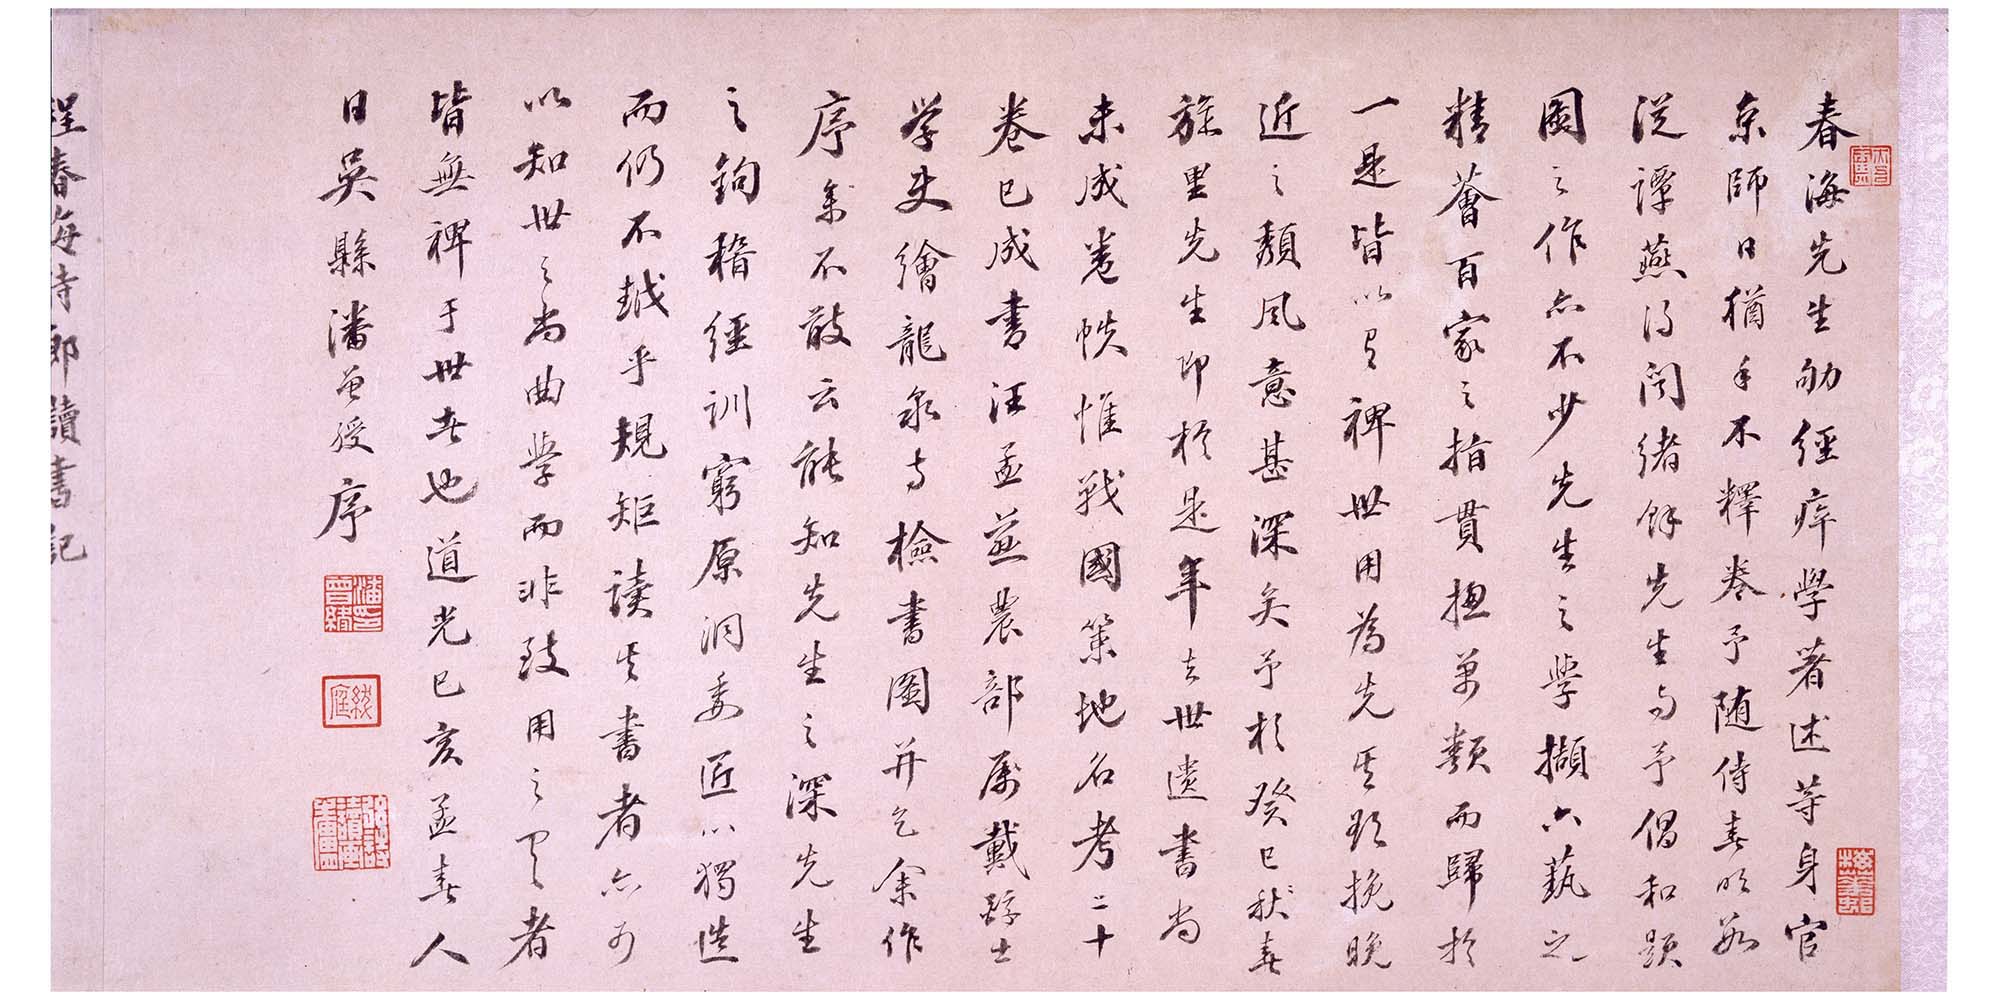 春海先生劬經瘁學著述等身官
京師日猶手不釋卷予随侍春明數
從譚燕得聞緒餘先生与予倡和題
圖之作亦不少先生之學擷六藝之
精薈百家之指貫扭萬類而歸於
一是皆以有裨世用為先其欲挽晚
近之頽風意甚深矣予於癸巳秋春
旋里先生即於是年去世遺書尚
未成卷帙惟戰國策地名考二十
卷已成書汪孟慈農部属戴醇士
学史繪龍泉寺檢書圖并乞余作
序余不敢云能知先生之深先生
之鉤稽經訓窮原洞委匠心獨造
而仍不越乎規矩读其書者亦可
以知世之尚曲學而非致用之具者
皆無裨于世者也道光己亥孟春人
日吳縣潘曾綬序
潘印曾綬
紱庭
程春海侍郎讀書記